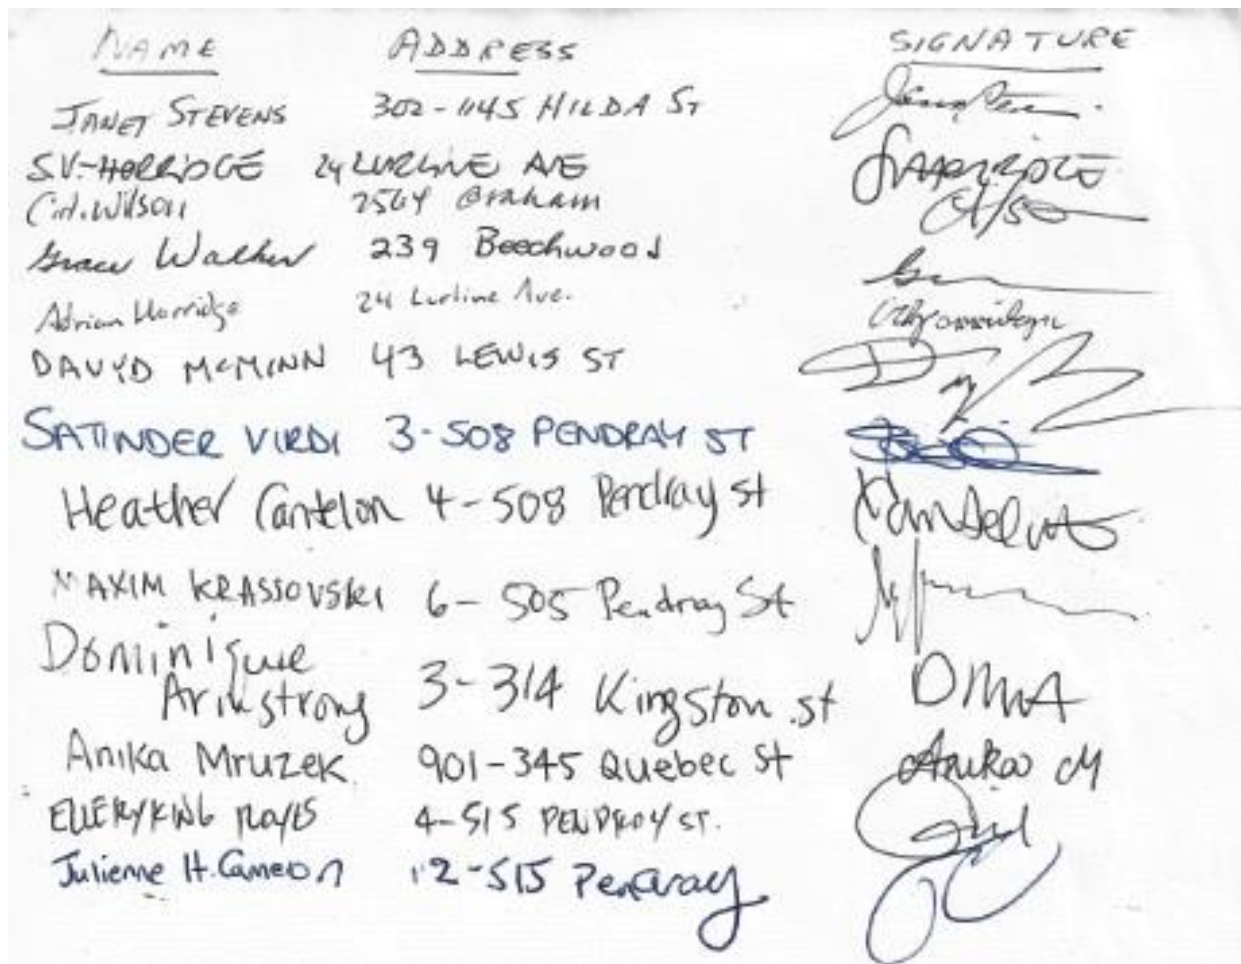 NAME ADDRESS SIGNATURE
JANET STEVENS 302-1145 HILDA ST
S.V. HORRIDGE 24 LURLINE AVE
Wilson 2564 Graham
Grace Walker 239 Beechwood
Adrian Horridge 24 Lurline Ave.
DAVYD McMINN 43 LEWIS ST
SATINDER VIRDI 3-508 PENDRAY ST
Heather Cantelon 4-508 Pendray St
MAXIM KRASSOVSKI 6-505 Pendray St
Dominique
Armstrong 3-314 Kingston St DMA
Anika Mruzek 901-345 Quebec St Anika M
ELLERY KING 4-515 PENDRAY ST.
Julienne H. Cameron 12-515 Pendray